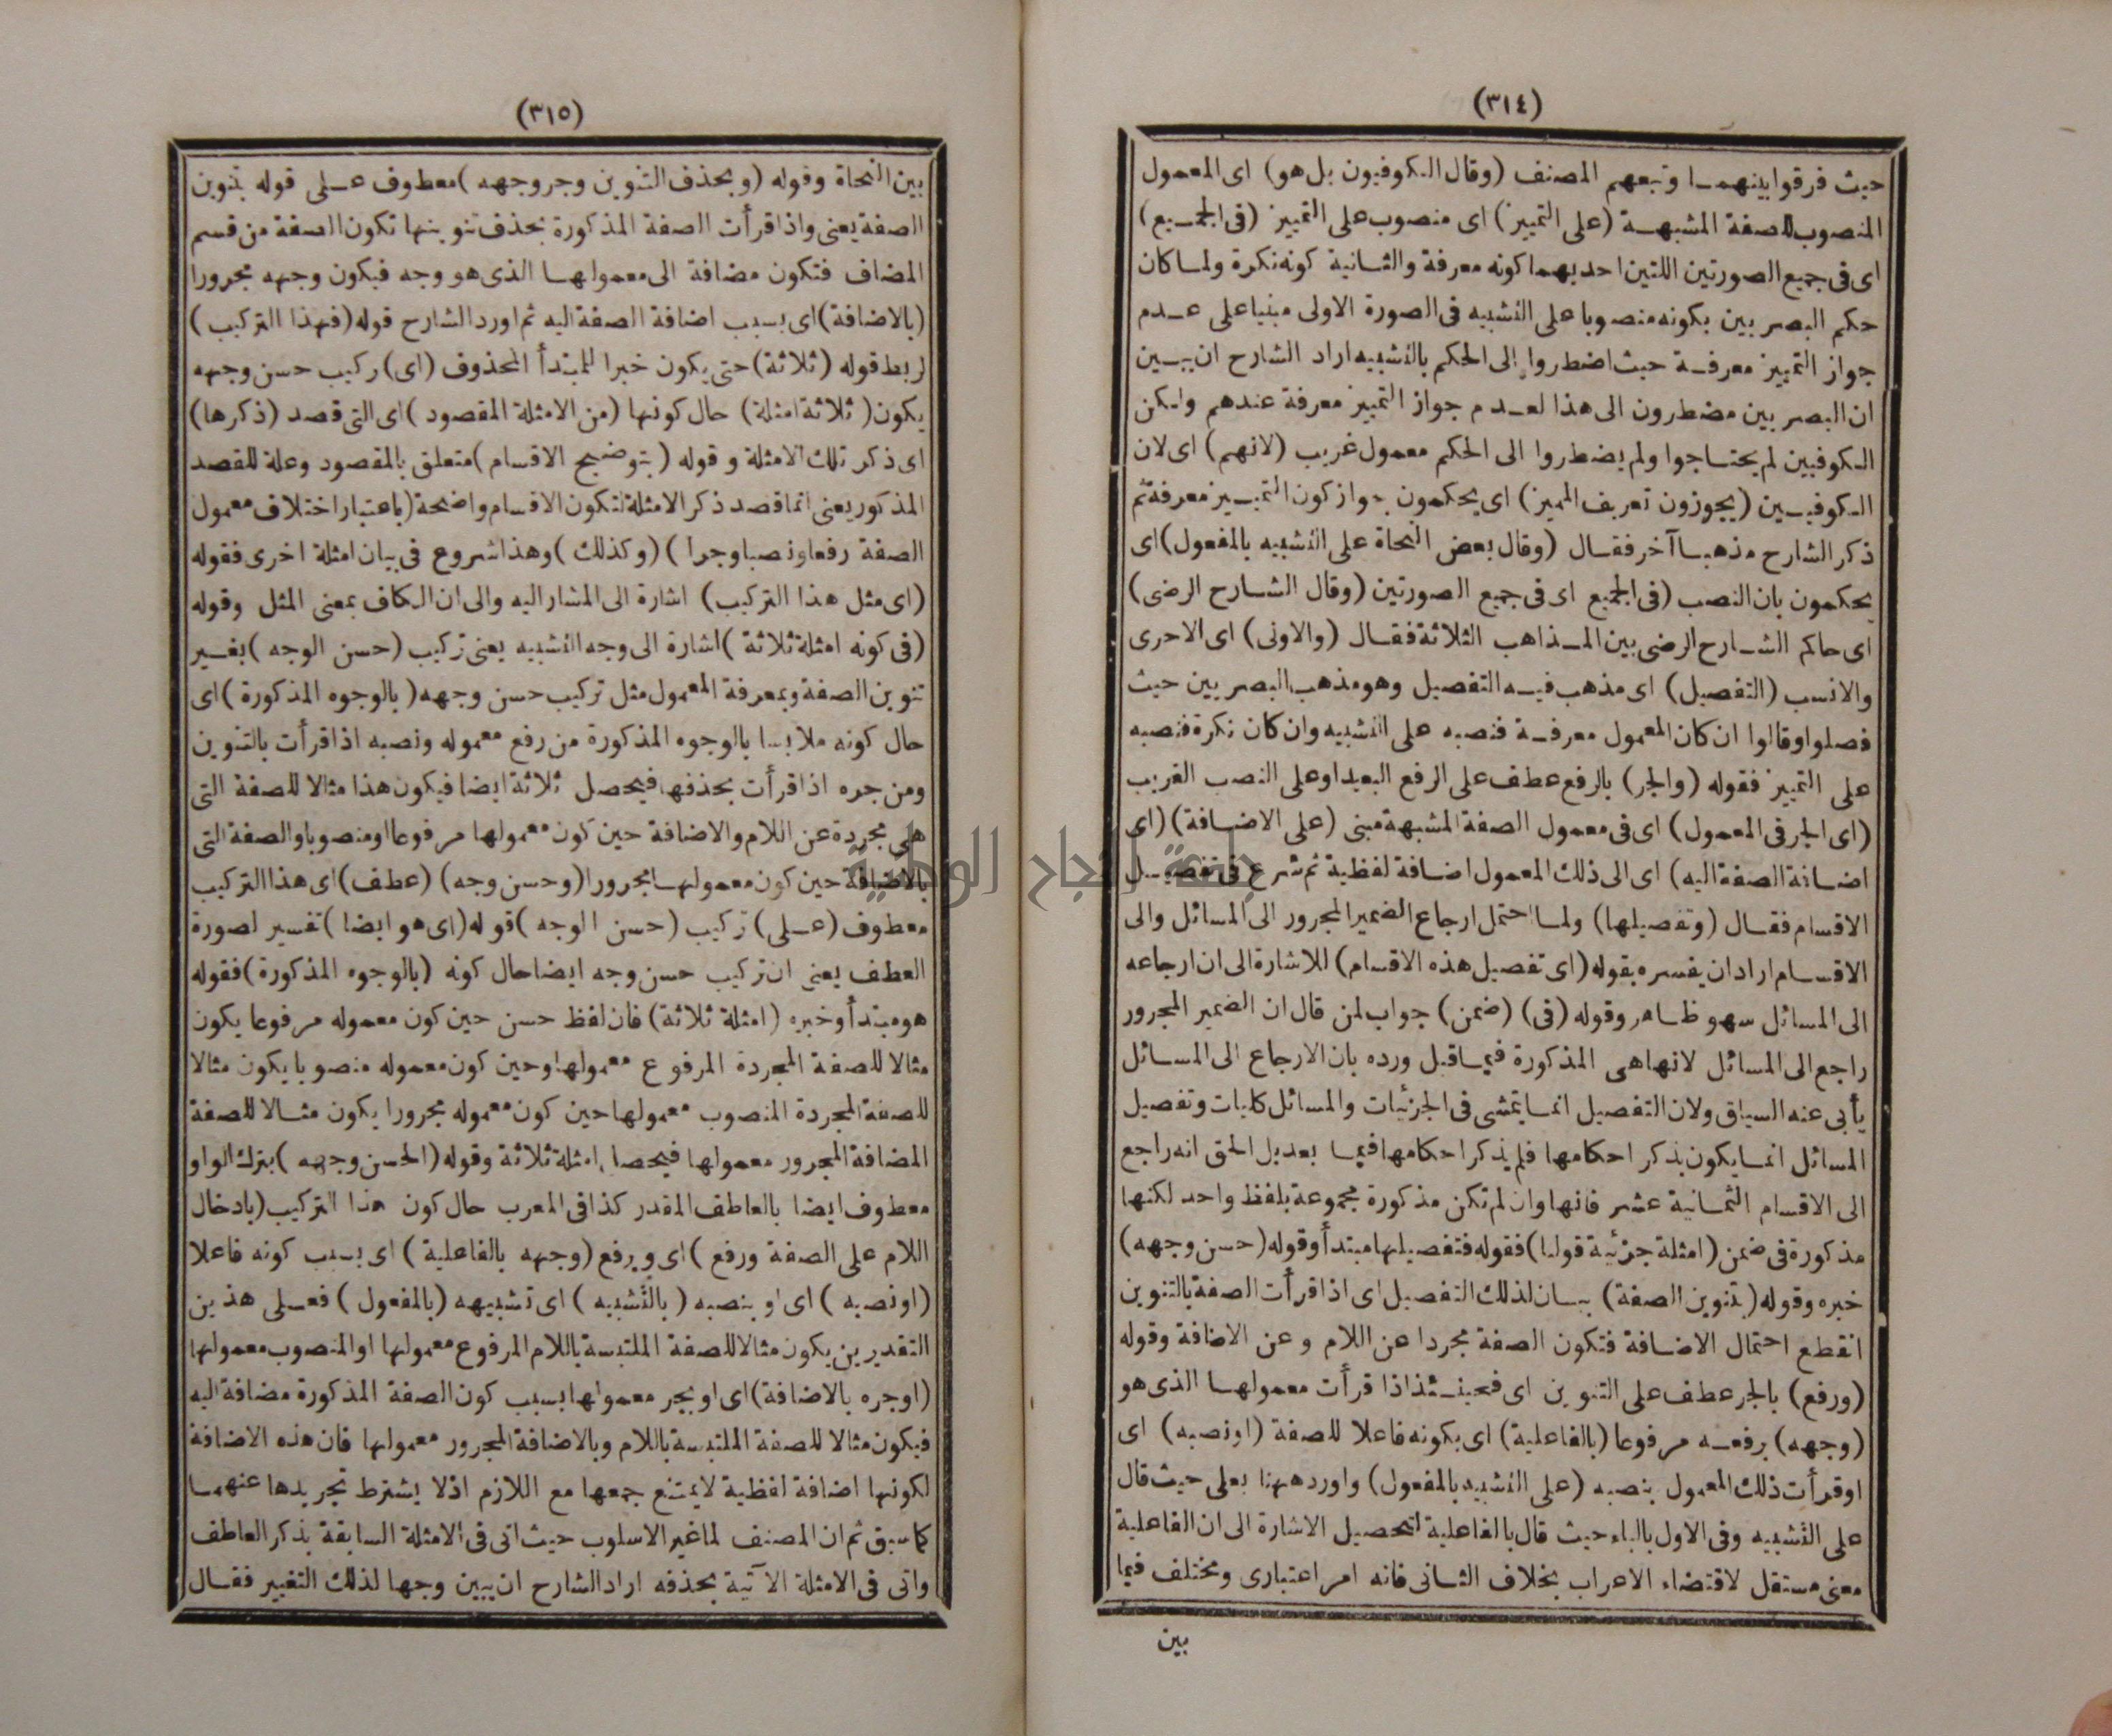 (٣١٤)
حيث فرقوا بينهما وتبعهم المصنف (وقال الكوفيون بل هو) اى المعمول
المنصوب للصفة المشبهة (على التمييز) اى منصوب على التمييز (فى الجميع)
اى فى جميع الصورتين اللتين احديهما كونه معرفة والثانية كونه نكرة ولما كان
حكم البصريين بكونه منصوبا على التشبيه فى الصورة الاولى مبنيا على عدم
جواز التمييز معرفة حيث اضطروا الى الحكم بالتشبيه اراد الشارح ان يبين
ان البصريين مضطرون الى هذا لعدم جواز التمييز معرفة عندهم ولكن
الكوفيين لم يحتاجوا ولم يضطروا الى الحكم معمول غريب (لانهم) اى لان
الكوفيين (يجوزون تعريف المميز) اى يحكمون بجواز كون التمييز معرفة ثم
ذكر الشارح مذهبا آخر فقال (وقال بعض النحاة على التشبيه بالمفعول) اى
يحكمون بان النصب (فى الجميع اى فى جميع الصورتين (وقال الشارح الرضى)
اى حاكم الشارح الرضى بين المذاهب الثلاثة فقال (والاولى) اى الاحرى
والانسب (التفصيل) اى مذهب فيه التفصيل وهو مذهب البصريين حيث
فصلوا وقالوا ان كان المعمول معرفة فنصبه على التشبيه وان كان نكرة فنصبه
على التمييز فقوله (والجر) بالرفع عطف على الرفع البعيد او على النصب القريب
(اى الجر فى المعمول) اى فى معمول الصفة المشبهة مبنى (على الاضافة) (اى
اضافة الصفة اليه) اى الى ذلك المعمول اضافة لفظية ثم شرع فى تفصيل
الاقسام فقال (وتفصيلها) ولما احتمل ارجاع الضمير المجرور الى المسائل والى
الاقسام اراد ان يفسره بقوله (اى تفصيل هذه الاقسام) للاشارة الى ان ارجاعه
الى المسائل سهو ظاهر وقوله (فى) (ضمن) جواب لمن قال ان الضمير المجرور
راجع الى المسائل لانها هى المذكورة فيما قبل ورده بان الارجاع الى المسائل
يأبى عنه السياق ولان التفصيل انما يتمشى فى الجزئيات والمسائل كليات وتفصيل
المسائل انما يكون بذكر احكامها فلم يذكر احكامها فيما بعد بل الحق انه راجع
الى الاقسام الثمانية عشر فانها وان لم تكن مذكورة مجموعة بلفظ واحد لكنها
مذكورة فى ضمن (امثلة جزئية قولنا) فقوله فتفصيلها مبتدأ وقوله (حسن وجهه)
خبره وقوله (بتنوين الصفة) بيان لذلك التفصيل اى اذا قرأت الصفة بالتنوين
انقطع احتمال الاضافة فتكون الصفة مجردا عن اللام و عن الاضافة وقوله
(ورفع) بالجر عطف على التنوين اى فحينئذ اذا قرأت معمولها الذى هو
(وجهه) برفعه مرفوعا (بالفاعلية) اى بكونه فاعلا للصفة (اونصبه) اى
او قرأت ذلك المعمول بنصبه (على التشبيه بالمفعول) واورد ههنا بعلى حيث قال
على التشبيه وفى الاول بالباء حيث قال بالفاعلية لتحصيل الاشارة الى ان الفاعلية
معنى مستقل لاقتضاء الاعراب بخلاف الثانى فانه امر اعتبارى ومختلف فيما
بين
(٣١٥)
بين النحاة وقوله (وبحذف التنوين وجر وجهه) معطوف على قوله بتنوين
الصفة يعنى واذا قرأت الصفة المذكورة بحذف تنوينها تكون الصفة من قسم
المضاف فتكون مضافة الى معمولها الذى هو وجه فيكون وجهه مجرورا
(بالاضافة) اى بسبب اضافة الصفة اليه ثم اورد الشارح قوله (فهذا التركيب)
لربط قوله (ثلاثة) حتى يكون خبرا للمبتدأ المحذوف (اى) ركيب حسن وجهه
يكون (ثلاثة امثلة) حال كونها (من الامثلة المقصود) اى التى قصد (ذكرها)
اى ذكر تلك الامثلة و قوله (بتوضيح الاقسام) متعلق بالمقصود وعلة للقصد
المذكور يعنى انما قصد ذكر الامثلة لتكون الاقسام واضحة (باعتبار اختلاف معمول
الصفة رفعا ونصبا وجرا) (وكذلك) وهذا شروع فى بيان امثلة اخرى فقوله
(اى مثل هذا التركيب) اشارة الى المشار اليه والى ان الكاف بمعنى المثل وقوله
(فى كونه امثلة ثلاثة) اشارة الى وجه التشبيه يعنى تركيب (حسن الوجه) بغير
تنوين الصفة وبمعرفة المعمول مثل تركيب حسن وجهه (بالوجوه المذكورة) اى
حال كونه ملابسا بالوجوه المذكورة من رفع معموله ونصبه اذا قرأت بالتنوين
ومن جره اذا قرأت بحذفها فيحصل ثلاثة ايضا فيكون هذا مثالا للصفة التى
هى مجردة عن اللام والاضافة حين كون معمولها مرفوعا او منصوبا والصفة التى
بالاضافة حين كون معمولها مجرورا (وحسن وجه) (عطف) اى هذا التركيب
معطوف (على) تركيب (حسن الوجه) قوله (اى هو ايضا) تفسير لصورة
العطف يعنى ان تركيب حسن وجه ايضا حال كونه (بالوجوه المذكورة) فقوله
هو مبتدأ وخبره (امثلة ثلاثة) فان لفظ حسن حين كون معموله مرفوعا يكون
مثالا للصفة المجردة المرفوع معمولها وحين كون معموله منصوبا يكون مثالا
للصفة المجردة المنصوب معمولها حين كون معموله مجرورا يكون مثالا للصفة
المضافة المجرور معمولها فيحصل امثلة ثلاثة وقوله (الحسن وجهه) بترك الواو
معطوف ايضا بالعاطف المقدر كذا فى المعرب حال كون هذا التركيب (بادخال
اللام على الصفة ورفع) اى ويرفع (وجهه بالفاعلية) اى بسبب كونه فاعلا
(اونصبه) اى او بنصبه (بالتشبيه) اى تشبيهه (بالمفعول) فعلى هذين
التقديرين يكون مثالا للصفة الملتبسة باللام المرفوع معمولها او المنصوب معمولها
(اوجره بالاضافة) اى او بجر معمولها بسبب كون الصفة المذكورة مضافة اليه
فيكون مثالا للصفة الملتبسة باللام وبالاضافة المجرور معمولها فان هذه الاضافة
لكونها اضافة لفظية لا يمتنع جمعها مع اللازم اذ لا يشترط تجريدها عنهما
كما سبق ثم ان المصنف لما غير الاسلوب حيث اتى فى الامثلة السابقة بذكر العاطف
واتى فى الامثلة الآتية بحذفه اراد الشارح ان يبين وجها لذلك التغيير فقال
جامعة النجاح الوطنية